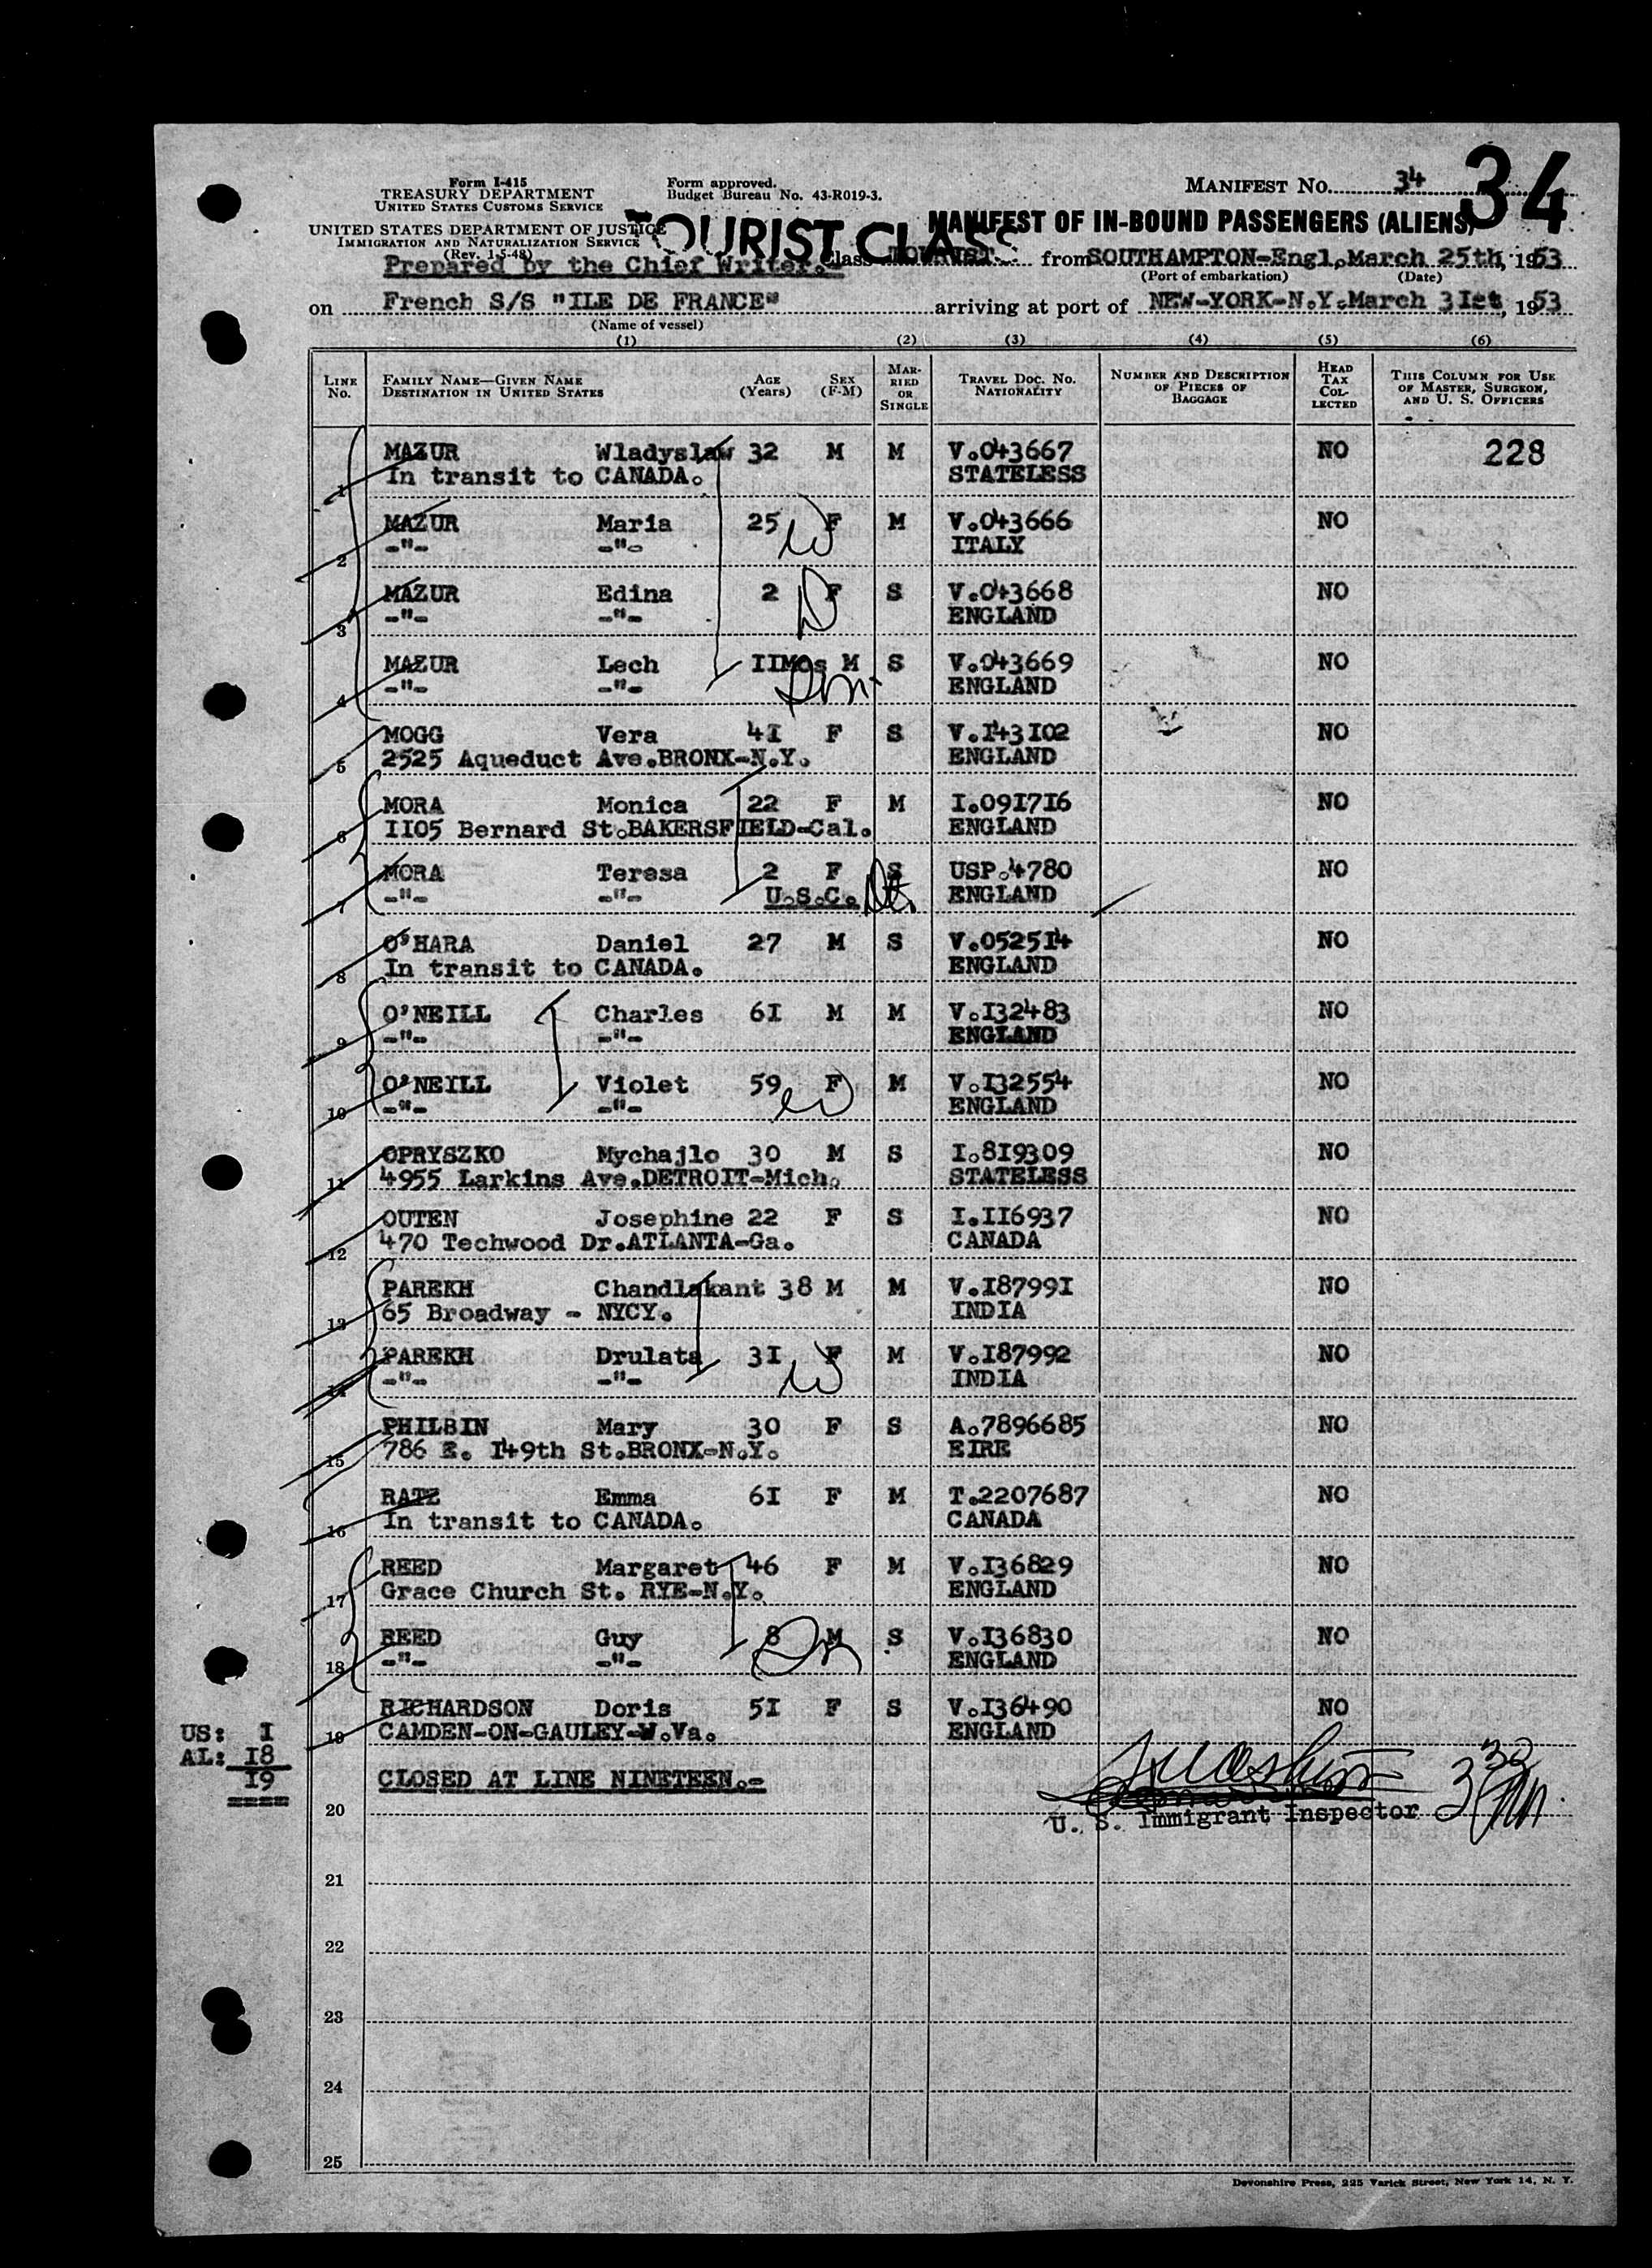 Form I-415
TREASURY DEPARTMENT
UNITED STATES CUSTOMS SERVICE
UNITED STATES DEPARTMENT OF JUSTICE
IMMIGRATION AND NATURALIZATION SERVICE
(Rev. 1-5-48)
Form approved.
Budget Bureau No. 43-R019-3.
MANIFEST No. 34
34
TOURIST CLASS
MANIFEST OF IN-BOUND PASSENGERS (ALIENS)
Prepared by the Chief Writer.- Class TOURIST from SOUTHAMPTON-Engl, March 25th, 1953
(Port of embarkation) (Date)
on French S/S "ILE DE FRANCE" arriving at port of NEW-YORK-N.Y. March 3Ist, 1953
(Name of vessel)
(1) (2) (3) (4) (5) (6)
LINE No. FAMILY NAME—GIVEN NAME DESTINATION IN UNITED STATES AGE (Years) SEX (F-M) MARRIED OR SINGLE TRAVEL DOC. NO. NATIONALITY NUMBER AND DESCRIPTION OF PIECES OF BAGGAGE HEAD TAX COLLECTED THIS COLUMN FOR USE OF MASTER, SURGEON, AND U. S. OFFICERS
MAZUR Wladyslaw 32 M M V.043667 NO 228
1 In transit to CANADA. STATELESS
MAZUR Maria 25 F M V.043666 NO
2 -"- -"- ITALY
MAZUR Edina 2 F S V.043668 NO
3 -"- -"- ENGLAND
MAZUR Lech IIMos M S V.043669 NO
4 -"- -"- ENGLAND
MOGG Vera 4I F S V.I43I02 NO
5 2525 Aqueduct Ave.BRONX-N.Y. ENGLAND
MORA Monica 22 F M I.09I7I6 NO
6 II05 Bernard St.BAKERSFIELD-Cal. ENGLAND
MORA Teresa 2 F S USP.4780 NO
7 -"- -"- U.S.C. ENGLAND
O'HARA Daniel 27 M S V.0525I4 NO
8 In transit to CANADA. ENGLAND
O'NEILL Charles 6I M M V.I32483 NO
9 -"- -"- ENGLAND
O'NEILL Violet 59 F M V.I32554 NO
10 -"- -"- ENGLAND
OPRYSZKO Mychajlo 30 M S I.8I9309 NO
11 4955 Larkins Ave.DETROIT-Mich. STATELESS
OUTEN Josephine 22 F S I.II6937 NO
12 470 Techwood Dr.ATLANTA-Ga. CANADA
PAREKH Chandlakant 38 M M V.I8799I NO
13 65 Broadway - NYCY. INDIA
PAREKH Drulata 3I F M V.I87992 NO
14 -"- -"- INDIA
PHILBIN Mary 30 F S A.7896685 NO
15 786 E. I49th St.BRONX-N.Y. EIRE
RATZ Emma 6I F M T.2207687 NO
16 In transit to CANADA. CANADA
REED Margaret 46 F M V.I36829 NO
17 Grace Church St. RYE-N.Y. ENGLAND
REED Guy 8 M S V.I36830 NO
18 -"- -"- ENGLAND
RICHARDSON Doris 5I F S V.I36490 NO
19 CAMDEN-ON-GAULEY-W.Va. ENGLAND
US: I
AL: I8
I9
CLOSED AT LINE NINETEEN.-
U. S. Immigrant Inspector
20
21
22
23
24
25
Devonshire Press, 225 Varick Street, New York 14, N. Y.